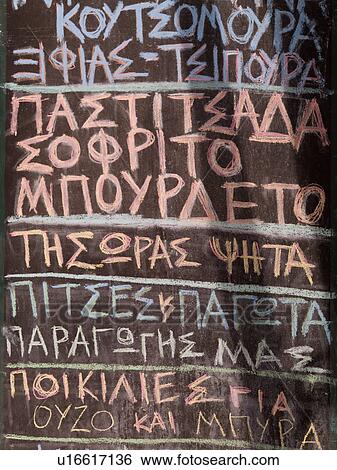 ΚΟΥΤΣΟΜΟΥΡΑ
ΞΙΦΙΑΣ-ΤΣΙΠΟΥΡΑ
ΠΑΣΤΙΤΣΑΔΑ
ΣΟΦΡΙΤΟ
ΜΠΟΥΡΔΕΤΟ
ΤΗΣ ΩΡΑΣ ΨΗΤΑ
ΠΙΤΣΕΣ Υ ΠΑΓΩΤΑ
ΠΑΡΑΓΩΓΗΣ ΜΑΣ
ΠΟΙΚΙΛΙΕΣ ΓΙΑ
ΟΥΖΟ ΚΑΙ ΜΠΥΡΑ
u16617136 www.fotosearch.com